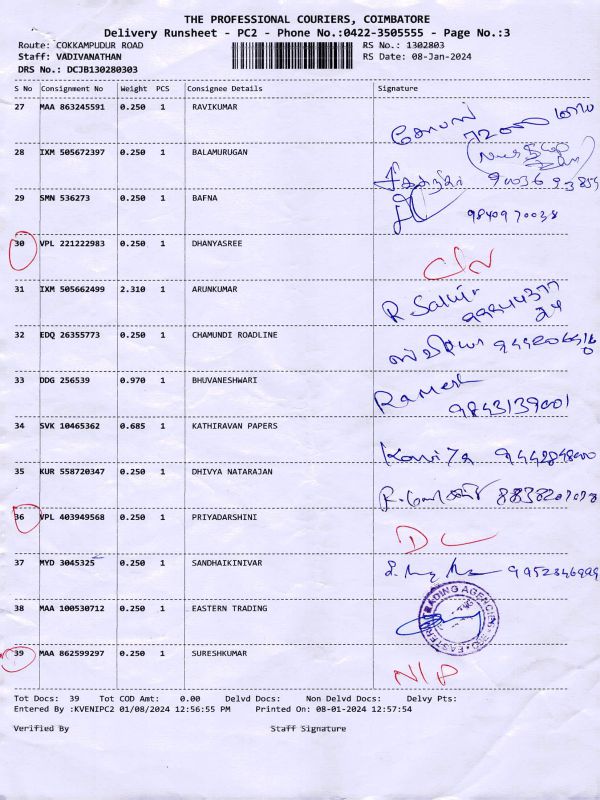 THE PROFESSIONAL COURIERS, COIMBATORE
Delivery Runsheet - PC2 - Phone No.:0422-3505555 - Page No.:3
Route: COKKAMPUDUR ROAD RS No.: 1302803
Staff: VADIVANATHAN RS Date: 08-Jan-2024
DRS No.: DCJB130280303
S No Consignment No Weight PCS Consignee Details Signature
27 MAA 863245591 0.250 1 RAVIKUMAR
28 IXM 505672397 0.250 1 BALAMURUGAN
29 SMN 536273 0.250 1 BAFNA
9840970038
30 VPL 221222983 0.250 1 DHANYASREE
31 IXM 505662499 2.310 1 ARUNKUMAR
32 EDQ 26355773 0.250 1 CHAMUNDI ROADLINE
33 DDG 256539 0.970 1 BHUVANESHWARI Ramesh
9843139001
34 SVK 10465362 0.685 1 KATHIRAVAN PAPERS
9442848400
35 KUR 558720347 0.250 1 DHIVYA NATARAJAN
36 VPL 403949568 0.250 1 PRIYADARSHINI DL
37 MYD 3045325 0.250 1 SANDHAIKINIVAR
38 MAA 100530712 0.250 1 EASTERN TRADING
EASTERN TRADING AGENCIES
39 MAA 862599297 0.250 1 SURESHKUMAR N/P
Tot Docs: 39 Tot COD Amt: 0.00 Delvd Docs: Non Delvd Docs: Delvy Pts:
Entered By :KVENIPC2 01/08/2024 12:56:55 PM Printed On: 08-01-2024 12:57:54
Verified By Staff Signature